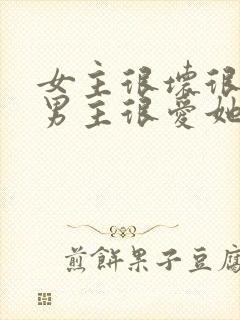 女主很坏很
男主很爱她
煎饼果子豆腐